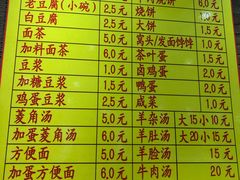 老豆腐(小碗) 2.5元 6.0元
白豆腐 2.5元 烧饼 2.0元
面茶 5.0元 大饼 1.5元
加料面茶 6.0元 窝头/发面饽饽 1.0元
豆浆 1.0元 茶叶蛋 1.5元
加糖豆浆 1.5元 卤鸡蛋 2.0元
鸡蛋豆浆 2.5元 鸭蛋 2.0元
菱角汤 5.0元 咸菜 1.0元
加蛋菱角汤 6.0元 羊杂汤 大15小10元
方便面 5.0元 羊肚汤 大20小15元
加蛋方便面 6.0元 羊脸汤 15元
牛肉汤 20元